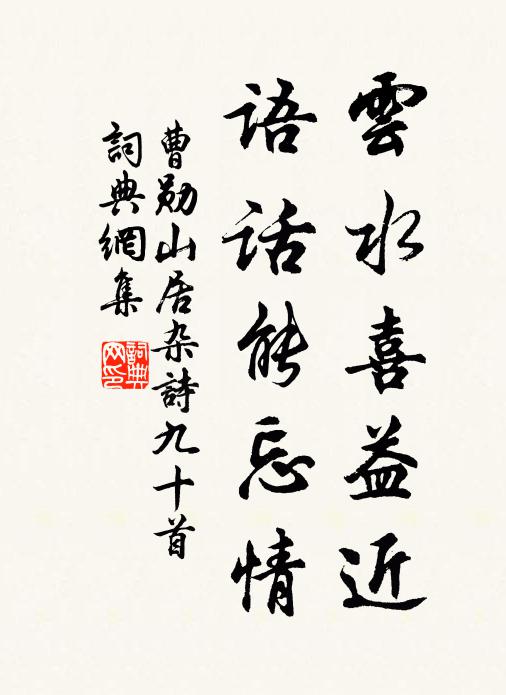 雲水喜益近
语话能忘情
曹勛山居杂詩九十首
詞典網集
詞典网印